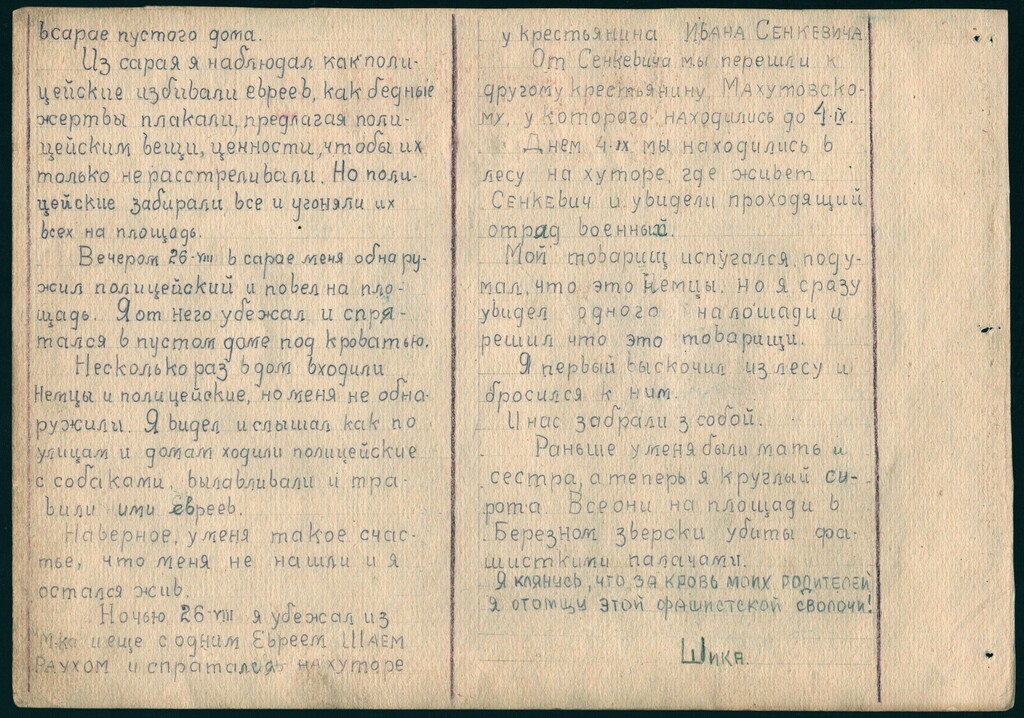 в сарае пустого дома.
Из сарая я наблюдал как поли-
цейские избивали евреев, как бедные
жертвы плакали, предлагая поли-
цейским вещи, ценности, чтобы их
только не расстреливали. Но поли-
цейские забирали все и угоняли их
всех на площадь.
Вечером 26-VIII в сарае меня обнару-
жил полицейский и повел на пло-
щадь. Я от него убежал и спря-
тался в пустом доме под кроватью.
Несколько раз в дом входили
Немцы и полицейские, но меня не обна-
ружили. Я видел и слышал как по
улицам и домам ходили полицейские
с собаками, вылавливали и тра-
вили ими евреев.
Наверное, у меня такое счас-
тье, что меня не нашли и я
остался жив.
Ночью 26-VIII я убежал из
м-ка и еще с одним Евреем ШАЕМ
РАУХОМ и спратался на хуторе
у крестьянина ИВАНА СЕНКЕВИЧА
От Сенкевича мы перешли к
другому крестьянину МАХУТОВСКО-
МУ, у которого находились до 4-IX.
Днем 4-IX мы находились в
лесу на хуторе, где живет
СЕНКЕВИЧ и увидели проходящий
отряд военных.
Мой товарищ испугался, поду-
мал, что это Немцы, но я сразу
увидел одного на лошади и
решил что это товарищи.
Я первый выскочил из лесу и
бросился к ним.
И нас забрали з собой.
Раньше у меня были мать и
сестра, а теперь я круглый си-
рота. Все они на площади в
Березном зверски убиты фа-
шисткими палачами.
Я клянусь, что за кровь моих родителей
я отомщу этой фашистской сволочи!
Шика.